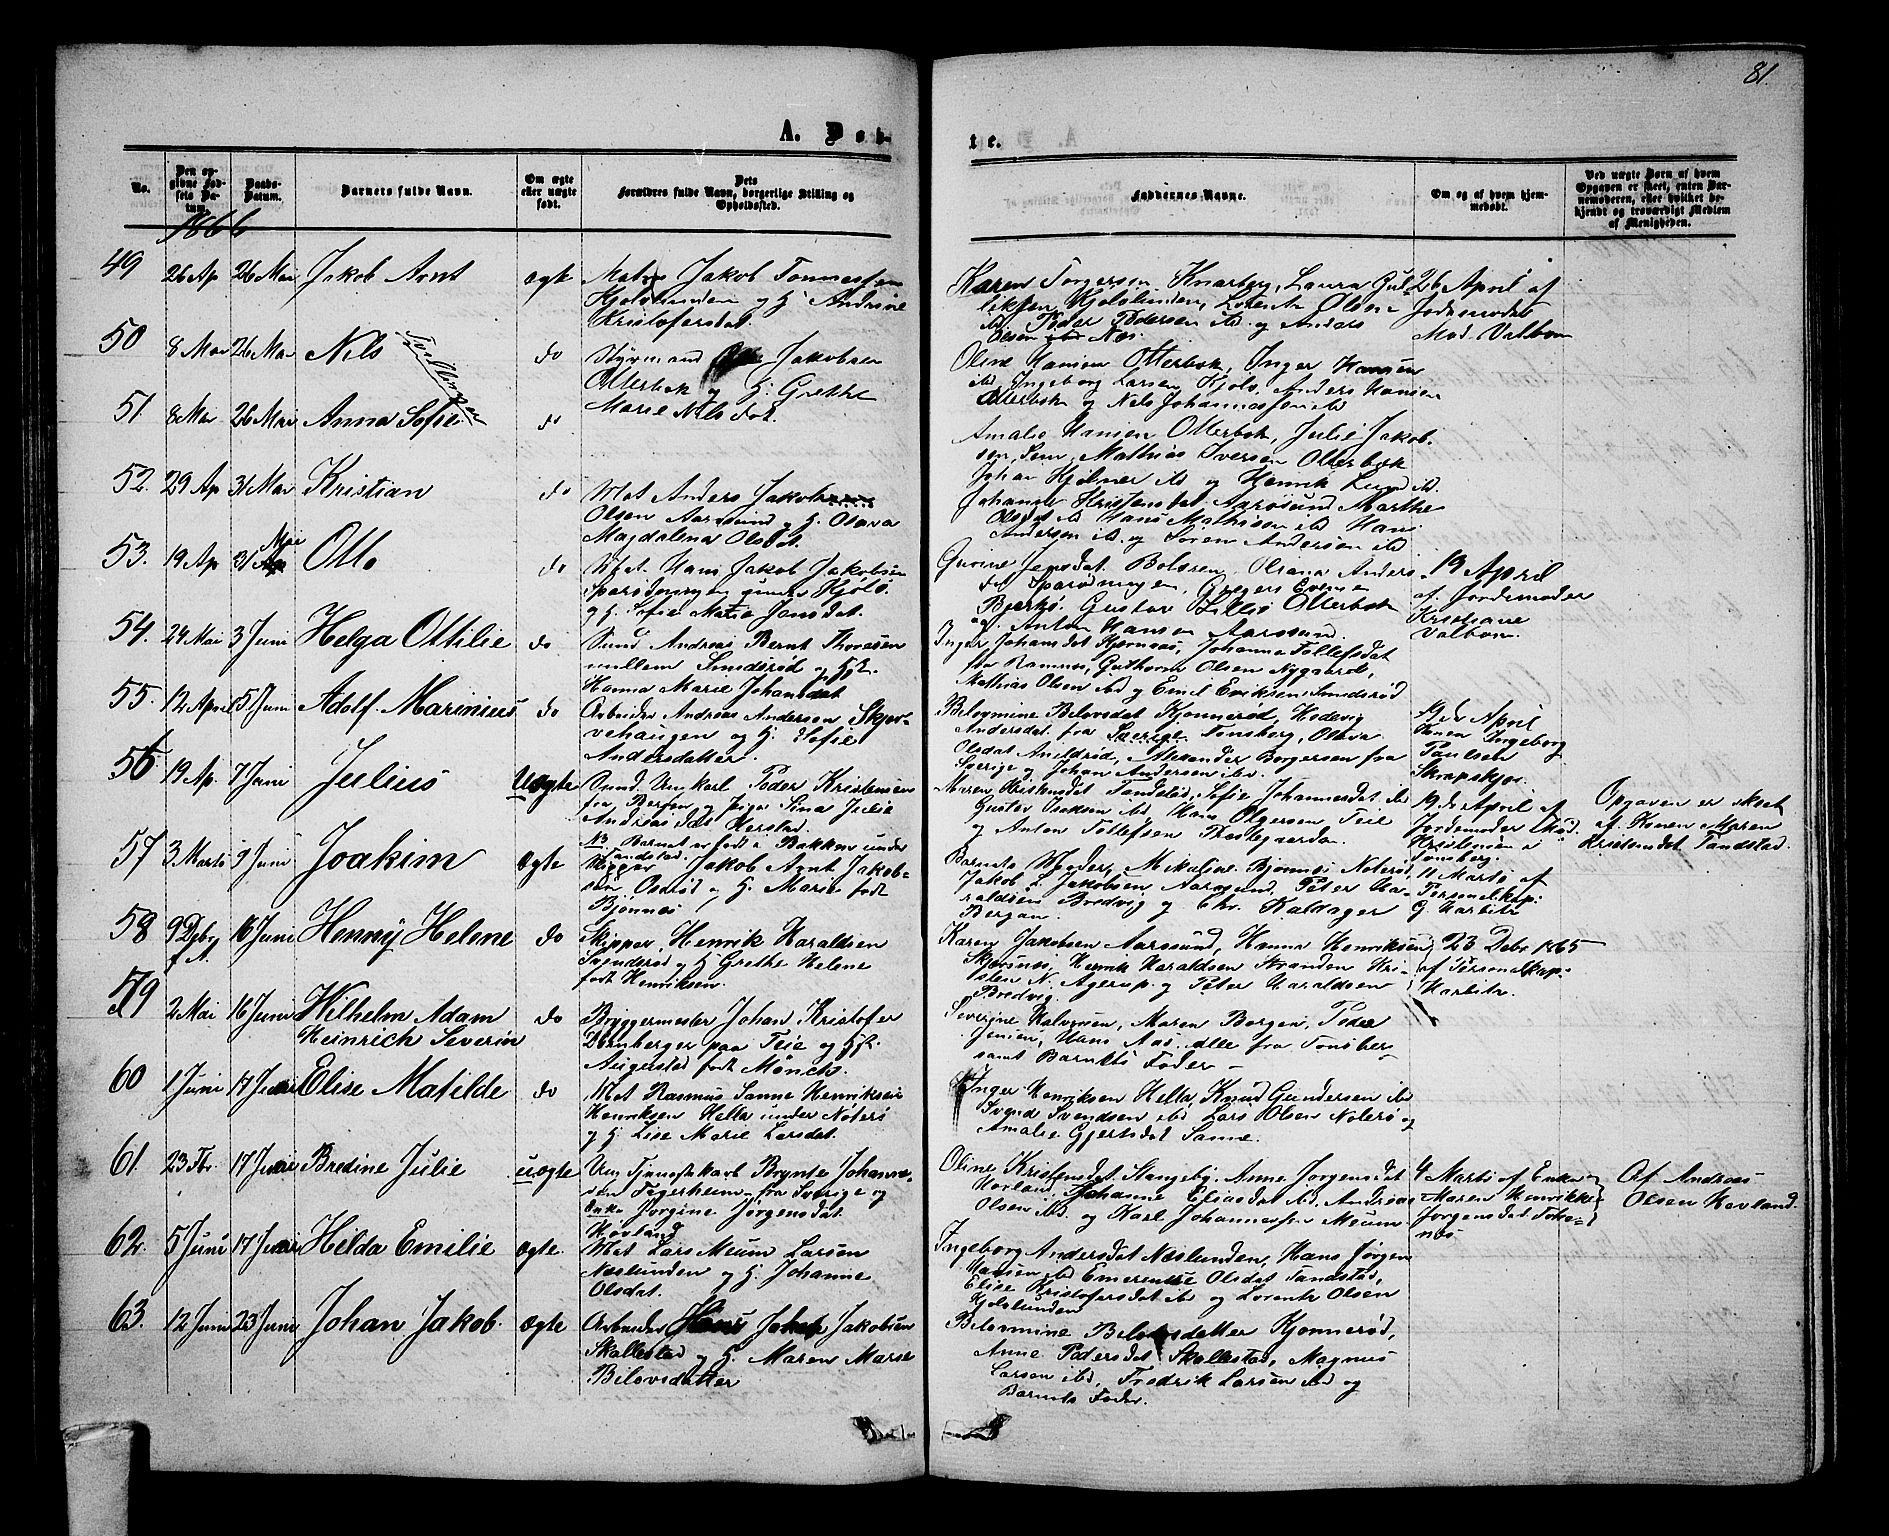 81.
A. Døb-
te.
No.
Den op-
givne Fød-
sels Da-
tum.
Daabs-
Datum.
Barnets fulde Navn.
Om ægte
eller uægte
født.
Dets
Forældres fulde Navn, borgerlige Stilling og
Opholdssted.
Faddernes Navne.
Om og af hvem hjem-
medøbt.
Ved uægte Børn af hvem
Opgaven er skeet, enten Bar-
nemoderen, eller hvilket be-
kjendt og troværdigt Medlem
af Menigheden.
1866
49 26 Ap 26 Mai Jakob Arnt ægte Matros Jakob Tonnessen
Hjolslunden og H. Andrine
Kristofersdat.
Karen Torgersen Knarberg, Laura Gul-
liksen Hjolslunden, Lorents Olsen
ib. Peder Pedersen ibd og Anders
Olsen Næs.
26 April af
Jordemoder
Mad. Valbom
50 8 Mai 26 Mai Nils Tvillinger do Styrmand Jakobsen
Otterbek og H. Grethe
Marie Nilsdat.
Oline Hansen Otterbek, Inger Hansen
ibd, Ingeborg Larsen, Hjolø, Anders Hansen
Otterbek og Nils Johannessen ibd
51. 8 Mai 26 Mai Anna Sofie do
Amalie Hansen Otterbek, Julie Jakob-
sen, Sem, Mathias Iversen Otterbek
Johan Hjolner ibd og Henrik Lund ibd.
52. 29 Ap 31 Mai Kristian do Mat Anders Jakob
Olsen Aarøsund og H. Olava
Magdalena Olsdat.
Johanne Kristensdat Aarøsund Marthe
Olsdat ibd Hans Mathisen ibd Hans
Andersen ibd. og Soren Andersen ibd
53. 19 Ap 31 Mai Otto do Mat. Hans Jakob Jakobsen
under Hjolø.
og H. Sofie Maria Jansdat.
Gurine Jensdat Bolæren, Olrana Anders-
dat Sparødningen, Gregers Evensen
Bjerkø. Gustav Lillø Otterbek
og Anton Hansen Aarøsund.
19 April
af Jordemoder
Kristiane
Valbom.
54. 24 Mai 3 Juni Helga Ottilie do Sømd Andreas Bernt Thovasen
mellem Smidsrød og Hst.
Hanna Marie Johansdat
Inger Johansdat Kjernaas, Johanna Tollefsdat
fra Ramnes, Guthorm Olsen Nygaard,
Mathias Olsen ibd og Emil Eriksen, Smidsrød
55. 12 April 5 Juni Adolf Marinius do Arbeider Andreas Andersen Skjer-
vehaugen og H. Sofie
Andersdatter.
Belovmine Belovsdat Kjonnerød, Hedevig
Andersdat. fra Sverige, Tonsberg, Olava
Olsdat Anildrød, Alexander Borgersen fra
Sverige og Johan Andersen ibd.
19de April
Konen Ingeborg
Paulsen
Skrapskjær.
56 19 Ap. 7 Juni Julius Uægte Sømd. Ungkarl Peder Kristensen
fra Bergen og Pige Sina Julie
Andreasdat Herstad.
NB. Barnet er født i Bakken under
Tandstad.
Maren Kristensdat Tandstad, Sofie Johannesdat ibd
Gustav Isaksen ibd, Hans Olgersen Teie
og Anton Tollefsen Prestegaarden.
19de April af
Jordemoder Mad.
Kristensen i
Tonsberg.
Opgaven er skeet
af Konen Maren
Kristensdat Tandstad.
57 3 Marts 9 Juni Joakim ægte Skipper Jakob Arnt Jakob-
sen Oserød, H. Marie født
Bjønnes
Barnets Moder, Mikaline Bjønnes Noterø,
Jakob L. Jakobsen Aarøsund, Peter Ha-
raldsen Bredvig og Chr. Kaldager
Bergan.
11 Marts af
Personelkap:
G. Harbitz
58 9 Debr f.A. 16 Juni Henny Helene do Skipper, Henrik Haraldsen
Svenderød og H Grethe Helene
født Henriksen.
Karen Jakobsen Aarøsund, Hanna Henriksen
Skjærsnæs, Henrik Haraldsen Stranden Kri-
sten N. Agerup. og Peter Haraldsen
Bredvig.
23 Debr 1865
af Personelkap:
Harbitz.
59 2 Mai 16 Juni Wilhelm Adam
Heinrich Severin do Bryggermester Johan Kristofer
Dornberger paa Teie og Hst.
Augusta født Mönch.
Severine Halvorsen, Maren Borgen, Peder
Jensen, Hans Aas, alle fra Tonsberg
samt Barnets Fader –
60 1 Juni 17 Juni Elise Matilde do Mat Rasmus Sanne Henriksen
Henriksen Hella under Noterø
og H. Lise Marie Larsdat.
Inger Henriksen Hella, Knud Gundersen ibd
Svend Svendsen ibd Lars Olsen Noterø og
Amalie Gjertsdat Sanne.
61. 23 Fbr. 17 Juni Bredine Julie uægte Ung Tjenestekarl Brynte Johanne-
sen Tegerheim fra Sverige og
Enke Jorgine Jorgensdat.
Hovland
Oline Kristensdat Stangeby, Anne Jorgensdat
Hovland, Johanne Eliasdat ibd, Andreas
Olsen ibd. og Karl Johannessen Meum
4 Marts af Enke
Maren Henrikke
Jorgensdat Toke-
næs
Af Andreas
Olsen Hovland.
62. 5 Juni 17 Juni Hilda Emilie ægte. Mat Lars Meum Larsen
Næslunden og H. Johanne
Olsdat.
Ingeborg Andersdat Næslunden, Hans Jørgen
Hansen ibd Emerentse Olsdat Tandstad,
Elise Kristofersdat ibd og Lorents Olsen
Hjolslunden
63. 12 Juni 23 Juni Johan Jakob. ægte Arbeider Hans Jakob Jakobsen
Skallestad og H. Maren Marie
Belovsdatter
Belovmine Belovsdatter Kjonnerød,
Anne Pedersdat Skallestad, Magnus
Larsen ibd, Fredrik Larsen ibd og
Barnets Fader.